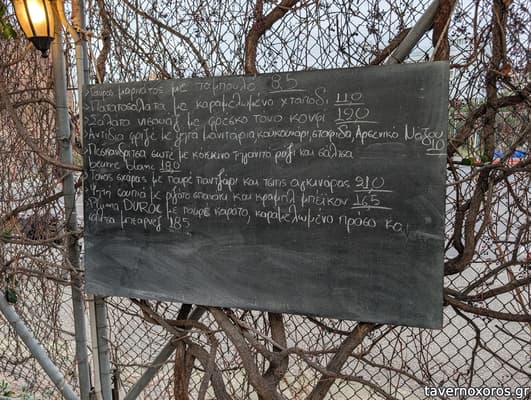 Γαύρος μαρινάτος με ταμπουλέ 8,5
Πατατοσαλάτα με καραμελωμένο χταπόδι 11,0
Σαλάτα νισουάζ με φρέσκο τόνο κονφί 19,0
Αντίδια φριζέ με ψητά μανιτάρια, κουκουνάρι, σταφίδα, Αρσενικό Νάξου
11,0
Πεσκανδρίτσα σωτέ με κόκκινο γίγαντα ρύζι και σάλτσα
beurre blanc 18,0
σχάρας με πουρέ παντζάρι και τσιπς αγκινάρας 21,0
Ψητή σουπιά με ριζότο σπανάκι και κραμπλ μπέικον 16,5
Πλούμα DUROC με πουρέ καρότο, καραμελωμένο πράσο και
σάλτσα μπεαρνέζ 18,5
tavernoxoros.gr